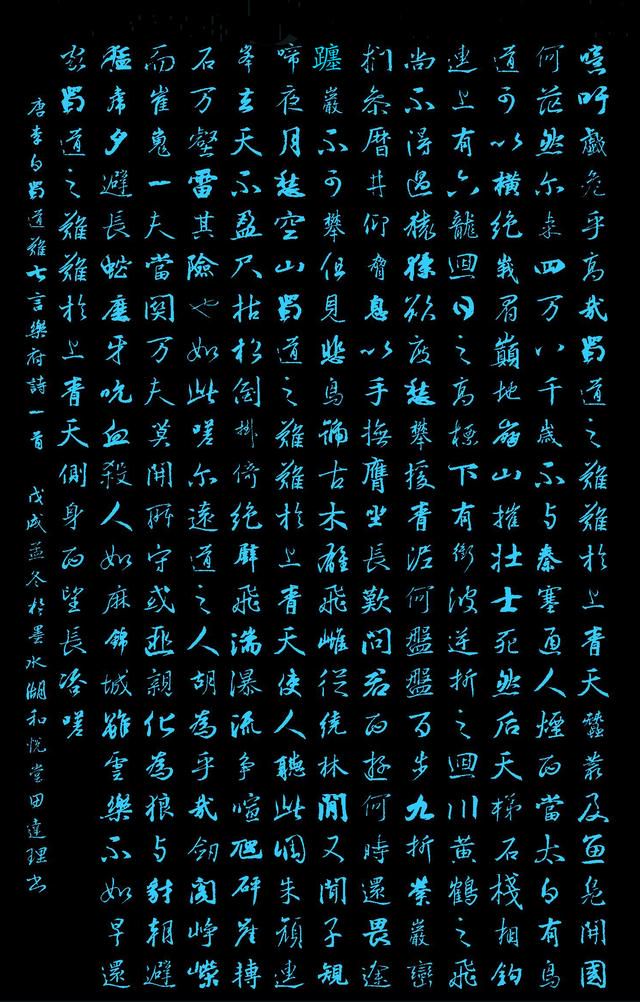 噫吁戲危乎高哉蜀道之難難於上青天蠶叢及魚鳧開國
何茫然尔來四万八千歲不与秦塞通人煙西當太白有鳥
道可以橫絕峨眉巔地崩山摧壯士死然后天梯石棧相鉤
連上有六龍迴日之高標下有衝波逆折之迴川黃鶴之飛
尚不得過猿猱欲度愁攀援青泥何盤盤百步九折縈巖巒
捫參曆井仰脅息以手撫膺坐長歎問君西遊何時還畏途
躔巖不可攀但見悲鳥號古木雄飛雌從繞林間又聞子規
啼夜月愁空山蜀道之難難於上青天使人聽此凋朱顏連
峯去天不盈尺枯松倒掛倚絕壁飛湍瀑流争喧豗砯崖轉
石万壑雷其險也如此嗟尔遠道之人胡為乎哉劍閣崢嶸
而崔嵬一夫當関万夫莫開所守或匪親化為狼与豺朝避
猛虎夕避長蛇磨牙吮血殺人如麻錦城雖雲樂不如早還
家蜀道之難難於上青天側身西望長咨嗟
唐李白蜀道難七言樂府詩一首 戊戌孟冬於墨水湖和悅堂田達理书